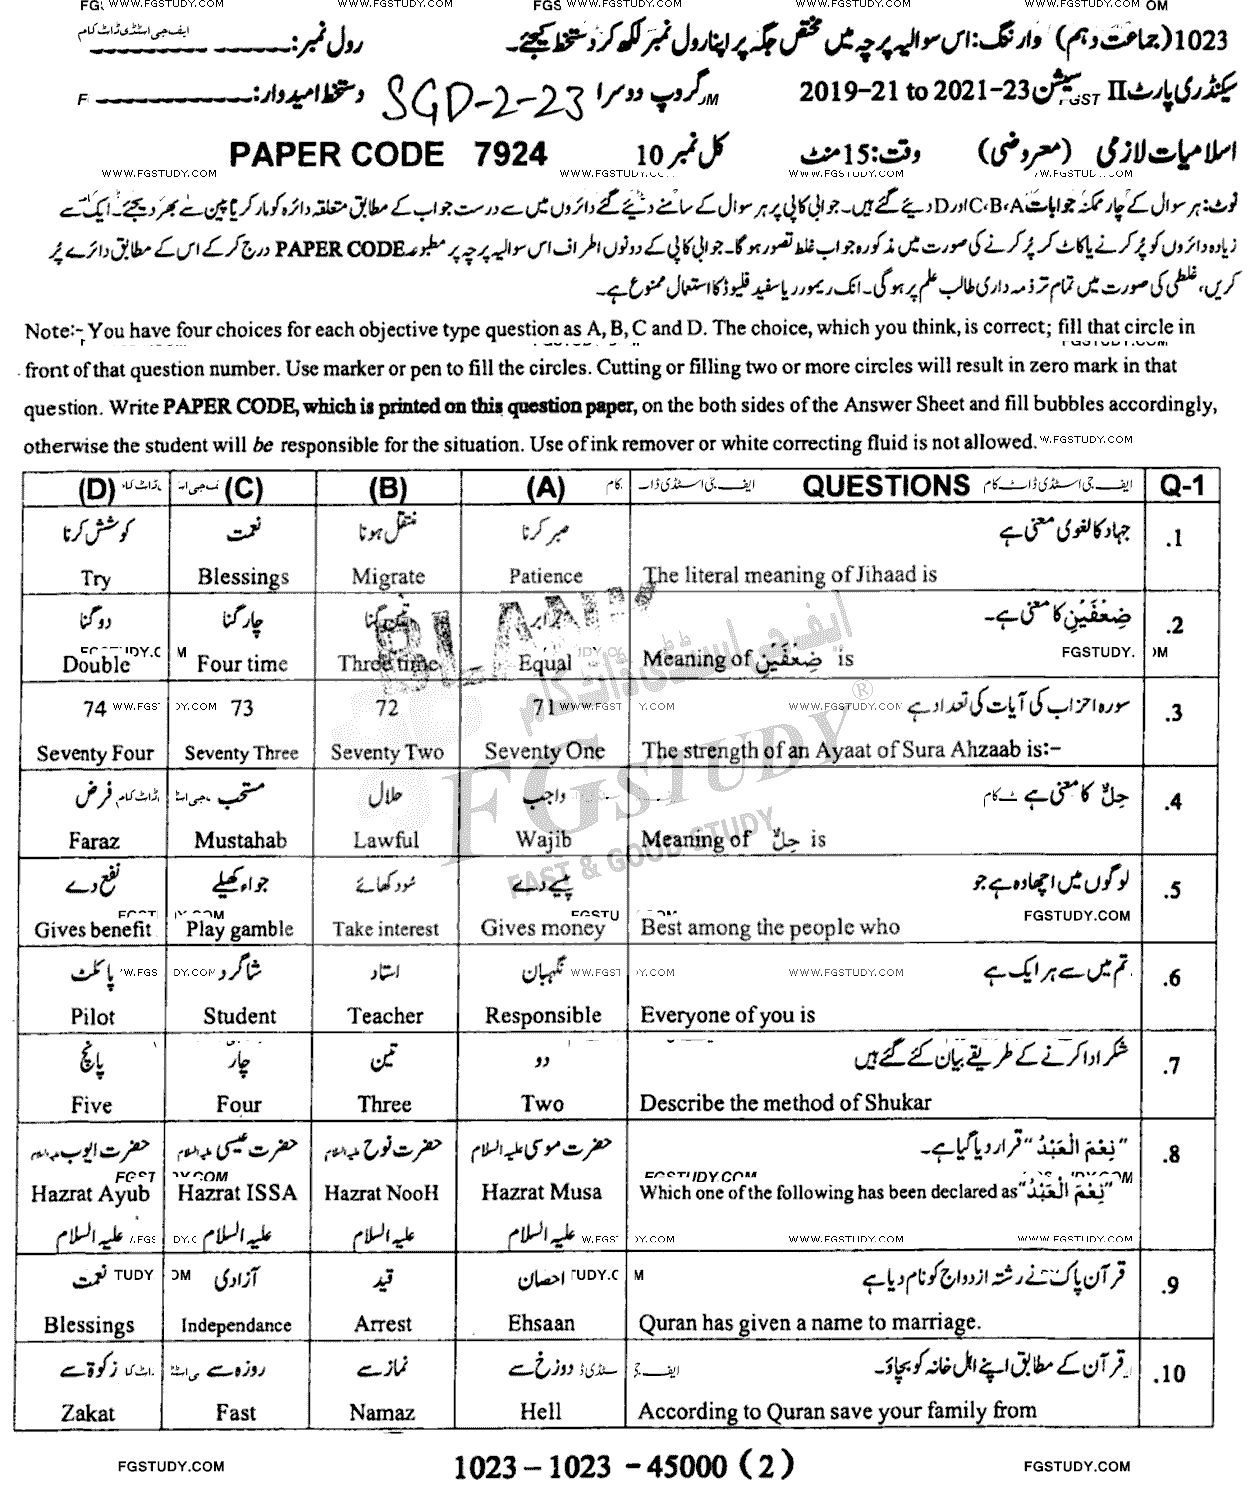 1023 (جماعت دہم) وارننگ: اس سوالیہ پرچہ میں مختص جگہ پر اپنا رول نمبر لکھ کر دستخط کیجئے۔ رول نمبر: ایف جی اسٹڈی ڈاٹ کام
سیکنڈری پارٹ II سیشن 2019-21 to 2021-23 گروپ دوسرا SGD-2-23 دستخط امیدوار:
اسلامیات لازمی (معروضی) وقت: 15 منٹ کل نمبر 10 PAPER CODE 7924
WWW.FGSTUDY.COM
نوٹ: ہر سوال کے چار ممکنہ جوابات A، B، C اور D دیئے گئے ہیں۔ جوابی کاپی پر ہر سوال کے سامنے دیئے گئے دائروں میں سے درست جواب کے مطابق متعلقہ دائرہ کو مارکر یا پین سے بھر دیجئے۔ ایک سے
زیادہ دائروں کو پُر کرنے یا کاٹ کر پُر کرنے کی صورت میں مذکورہ جواب غلط تصور ہوگا۔ جوابی کاپی کے دونوں اطراف اس سوالیہ پرچہ پر مطبوعہ PAPER CODE درج کر کے اس کے مطابق دائرے پُر
کریں، غلطی کی صورت میں تمام تر ذمہ داری طالب علم پر ہوگی۔ انک ریموور یا سفید فلیوڈ کا استعمال ممنوع ہے۔
Note:- You have four choices for each objective type question as A, B, C and D. The choice, which you think, is correct; fill that circle in
front of that question number. Use marker or pen to fill the circles. Cutting or filling two or more circles will result in zero mark in that
question. Write PAPER CODE, which is printed on this question paper, on the both sides of the Answer Sheet and fill bubbles accordingly,
otherwise the student will be responsible for the situation. Use of ink remover or white correcting fluid is not allowed.
(D) (C) (B) (A) QUESTIONS Q-1
کوشش کرنا نعمت منتقل ہونا صبر کرنا جہاد کا لغوی معنی ہے .1
Try Blessings Migrate Patience The literal meaning of Jihaad is
دو گنا چار گنا تین گنا برابر ضِعْفَيْنِ کا معنی ہے۔ .2
Double Four time Three time Equal Meaning of ضِعْفَيْنِ is
74 73 72 71 سورہ احزاب کی آیات کی تعداد ہے .3
Seventy Four Seventy Three Seventy Two Seventy One The strength of an Ayaat of Sura Ahzaab is:-
فرض مستحب حلال واجب حِلٌّ کا معنی ہے .4
Faraz Mustahab Lawful Wajib Meaning of حِلٌّ is
نفع دے جواء کھیلے سُود کھائے پیسے دے لوگوں میں اچھا وہ ہے جو .5
Gives benefit Play gamble Take interest Gives money Best among the people who
پائلٹ شاگرد استاد نگہبان تم میں سے ہر ایک ہے .6
Pilot Student Teacher Responsible Everyone of you is
پانچ چار تین دو شکر ادا کرنے کے طریقے بیان کئے گئے ہیں .7
Five Four Three Two Describe the method of Shukar
حضرت ایوب علیہ السلام حضرت عیسیٰ علیہ السلام حضرت نوح علیہ السلام حضرت موسیٰ علیہ السلام "نِعْمَ الْعَبْدُ" قرار دیا گیا ہے۔ .8
Hazrat Ayub Hazrat ISSA Hazrat NooH Hazrat Musa Which one of the following has been declared as "نِعْمَ الْعَبْدُ"
علیہ السلام علیہ السلام علیہ السلام علیہ السلام
نعمت آزادی قید احسان قرآن پاک نے رشتہ ازدواج کو نام دیا ہے .9
Blessings Independance Arrest Ehsaan Quran has given a name to marriage.
زکوٰۃ سے روزہ سے نماز سے دوزخ سے قرآن کے مطابق اپنے اہل خانہ کو بچاؤ۔ .10
Zakat Fast Namaz Hell According to Quran save your family from
BLANK
ایف جی اسٹڈی ڈاٹ کام
FGSTUDY ®
FAST & GOOD STUDY
FGSTUDY.COM 1023 – 1023 – 45000 (2) FGSTUDY.COM